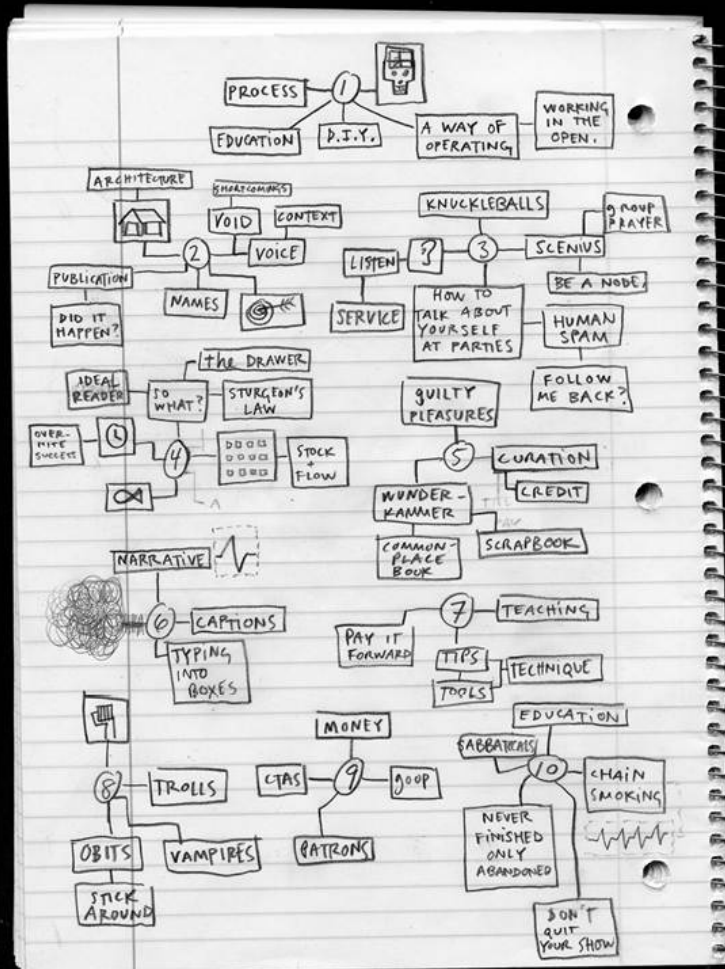 1
PROCESS
EDUCATION
D.I.Y.
A WAY OF
OPERATING
WORKING
IN THE
OPEN.
2
ARCHITECTURE
SHORTCOMINGS
VOID
CONTEXT
VOICE
PUBLICATION
DID IT
HAPPEN?
NAMES
3
KNUCKLEBALLS
group
PRAYER
SCENIUS
BE A NODE.
?
LISTEN
SERVICE
HOW TO
TALK ABOUT
YOURSELF
AT PARTIES
HUMAN
SPAM
FOLLOW
ME BACK?
4
the DRAWER
IDEAL
READER
SO
WHAT?
STURGEON'S
LAW
OVER-
NITE
SUCCESS
STOCK
+
FLOW
5
GUILTY
PLEASURES
CURATION
CREDIT
WUNDER-
KAMMER
SCRAPBOOK
COMMON-
PLACE
BOOK
6
NARRATIVE
CAPTIONS
TYPING
INTO
BOXES
7
TEACHING
PAY IT
FORWARD
TIPS
TOOLS
TECHNIQUE
8
TROLLS
OBITS
VAMPIRES
STICK
AROUND
9
MONEY
CTAS
GOOP
PATRONS
10
EDUCATION
SABBATICALS
CHAIN
SMOKING
NEVER
FINISHED
ONLY
ABANDONED
DON'T
QUIT
YOUR SHOW